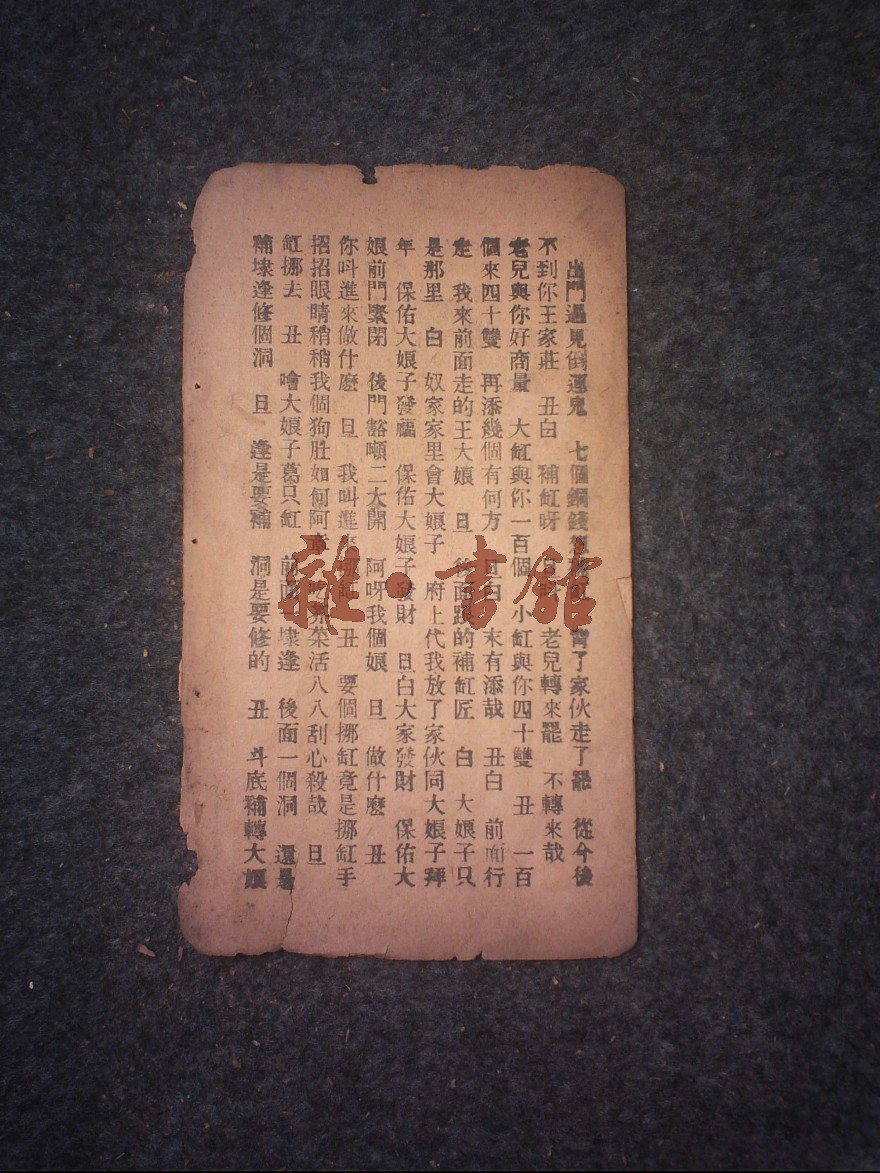 出門遇見倒運鬼　七個銅錢 了家伙走了罷　從今後
不到你王家莊　丑白　補缸呀 老兒轉來罷　不轉來哉
老兒與你好商量　大缸與你一百個　小缸與你四十雙　丑　一百
個來四十雙　再添幾個有何方　旦白　末有添哉　丑白　前面行
走　我來前面走的王大娘　旦　後面跟的補缸匠　白　大娘子只
是那里　白　奴家家里會大娘子　府上代我放了家伙同大娘子拜
年　保佑大娘子發福　保佑大娘子發財　旦白大家發財　保佑大
娘前門緊閉　後門豁噸二大開　阿呀我個娘　旦　做什麽　丑
你呌進來做什麽　旦　我叫進來挪缸　丑　要個挪缸竟是挪缸手
招招眼睛稍稍我個狗肚如何阿 吃芥菜活八八刮心殺哉　旦
缸挪去　丑　噲大娘子葛只缸　前面一埭逢　後面一個洞　還是
補埭逢修個洞　旦　逢是要補　洞是要修的　丑　斗底補轉大娘
雜·書館